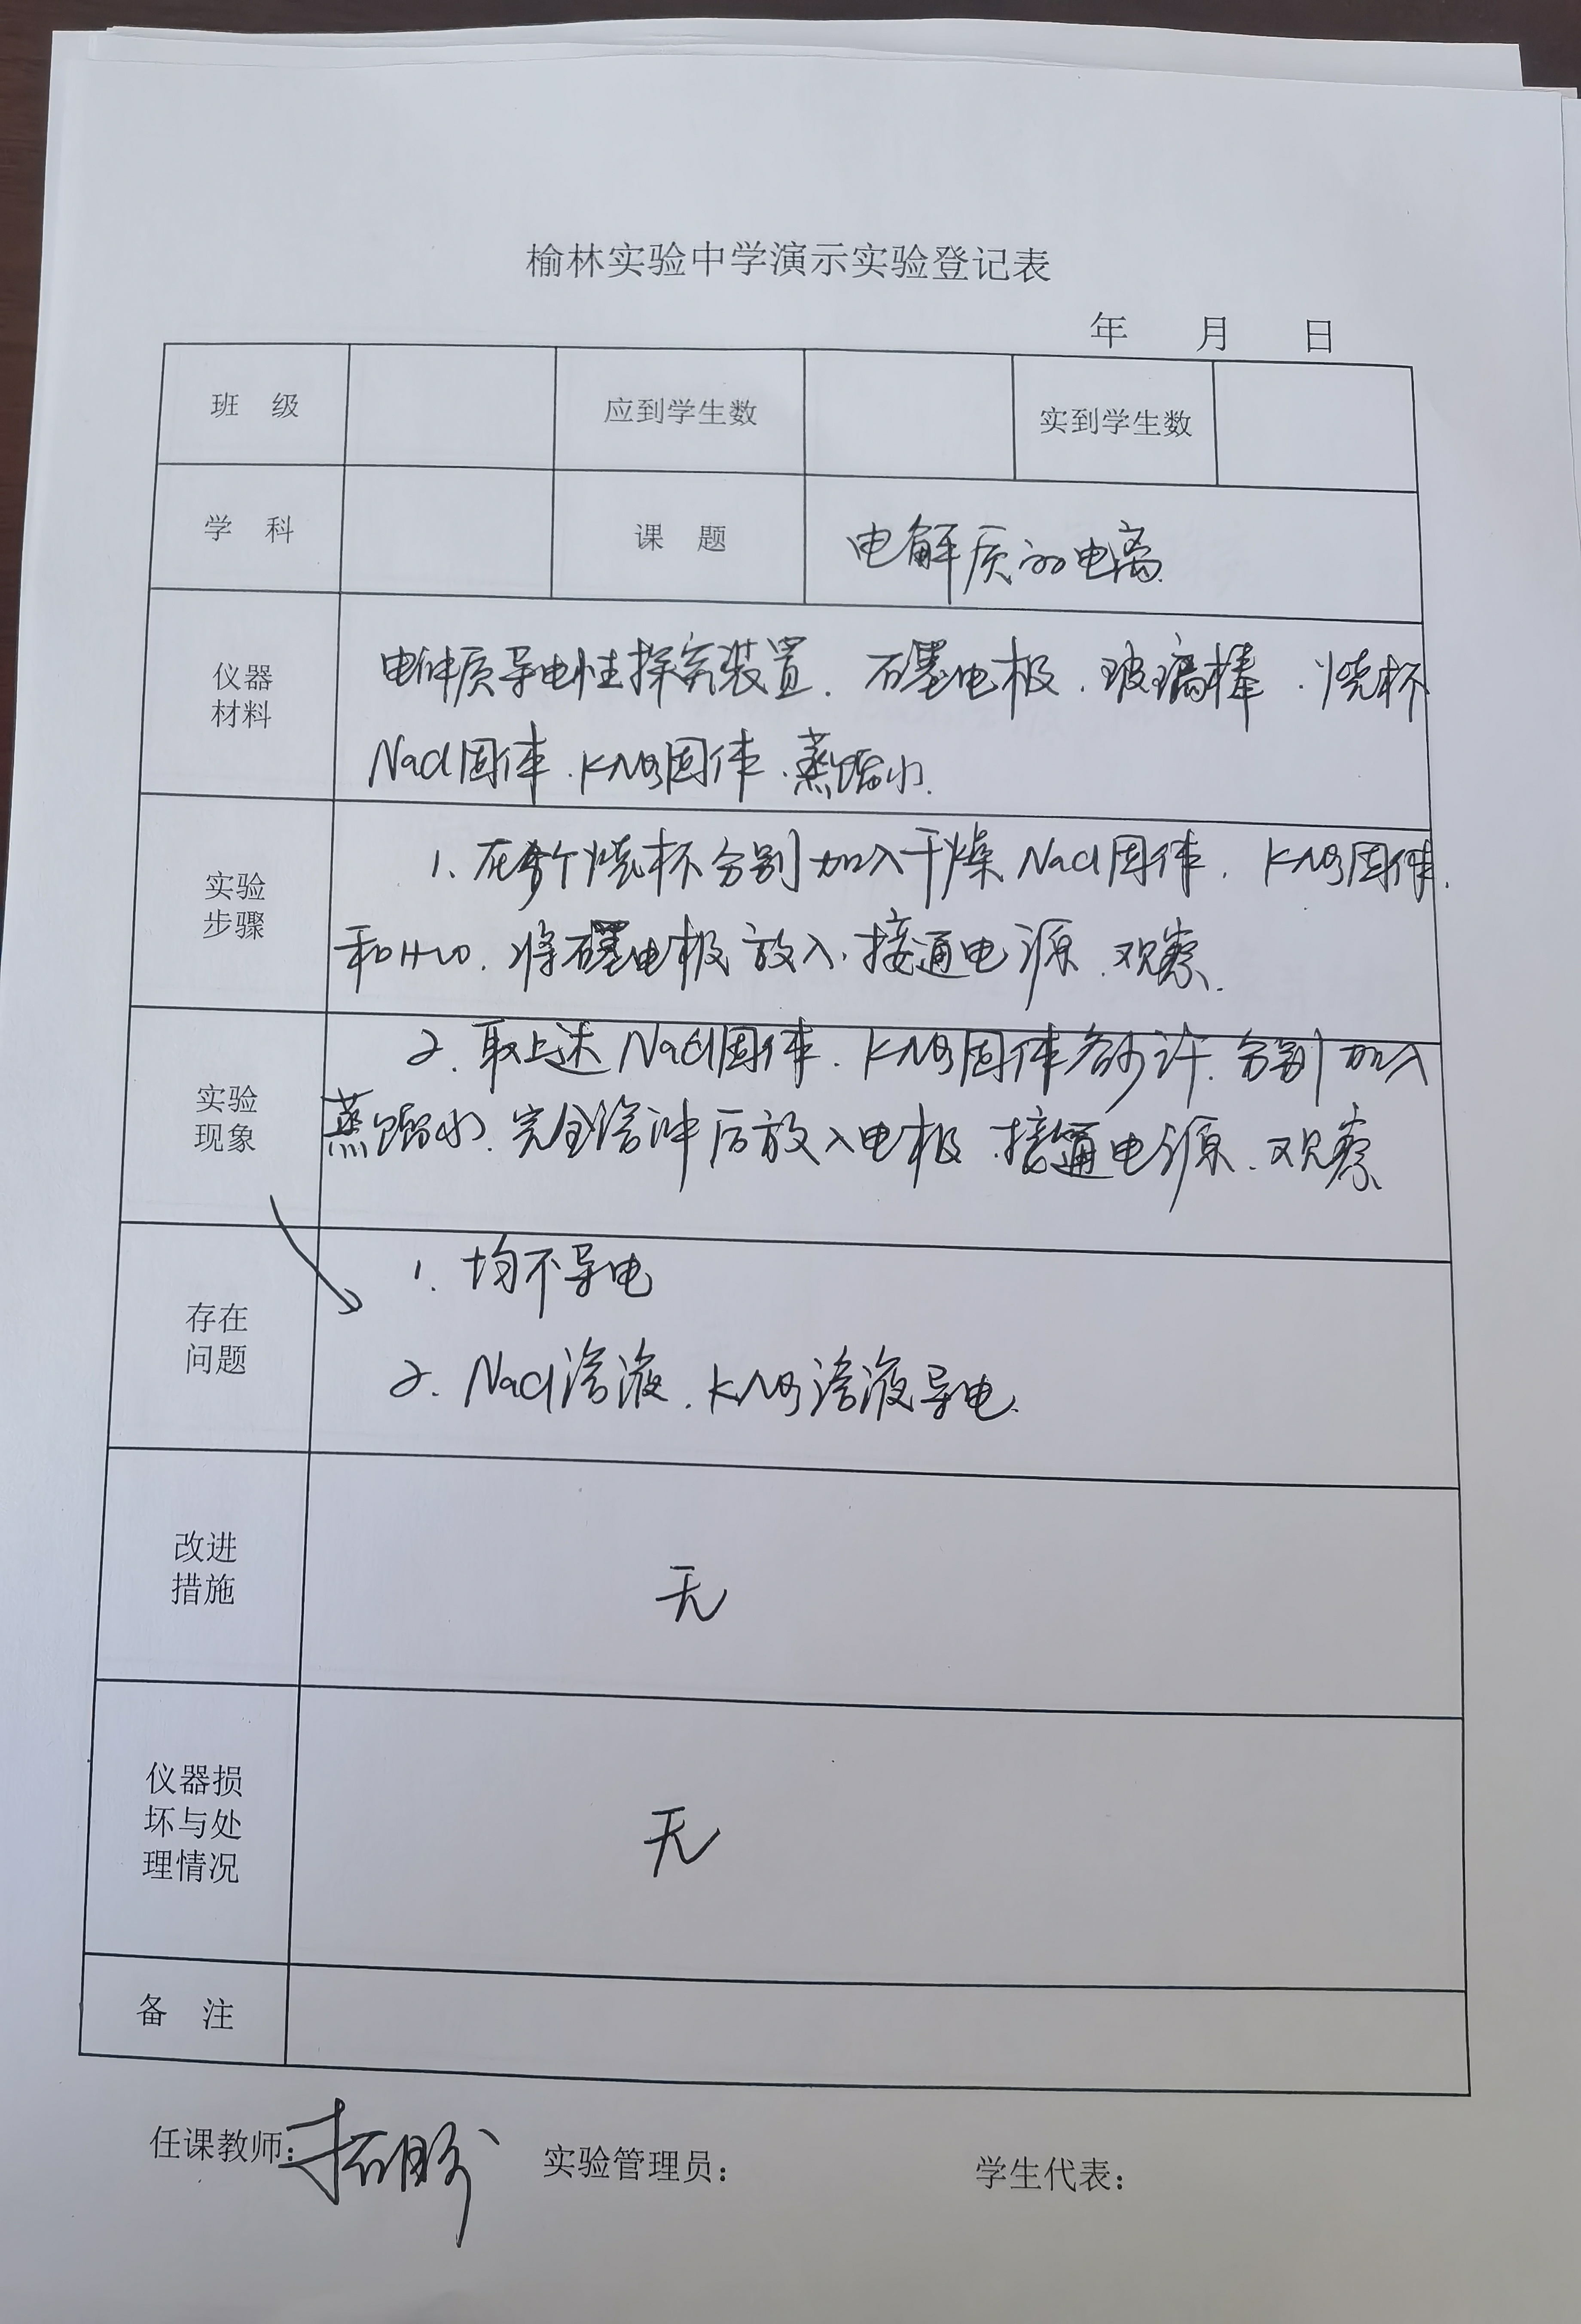 榆林实验中学演示实验登记表
年 月 日
班 级 应到学生数 实到学生数
学 科 课 题 电解质的电离
仪器
材料
电解质导电性探究装置. 石墨电极. 玻璃棒. 烧杯
NaCl固体. KNO3固体. 蒸馏水.
实验
步骤
1. 在 个烧杯分别加入干燥NaCl固体. KNO3固体.
和H2O. 将石墨电极放入. 接通电源. 观察.
实验
现象
2. 取上述NaCl固体. KNO3固体各少许. 分别加入
蒸馏水. 完全溶解后放入电极. 接通电源. 观察
存在
问题
1. 均不导电
2. NaCl溶液. KNO3溶液导电.
改进
措施
无
仪器损
坏与处
理情况
无
备 注
任课教师: 实验管理员: 学生代表: